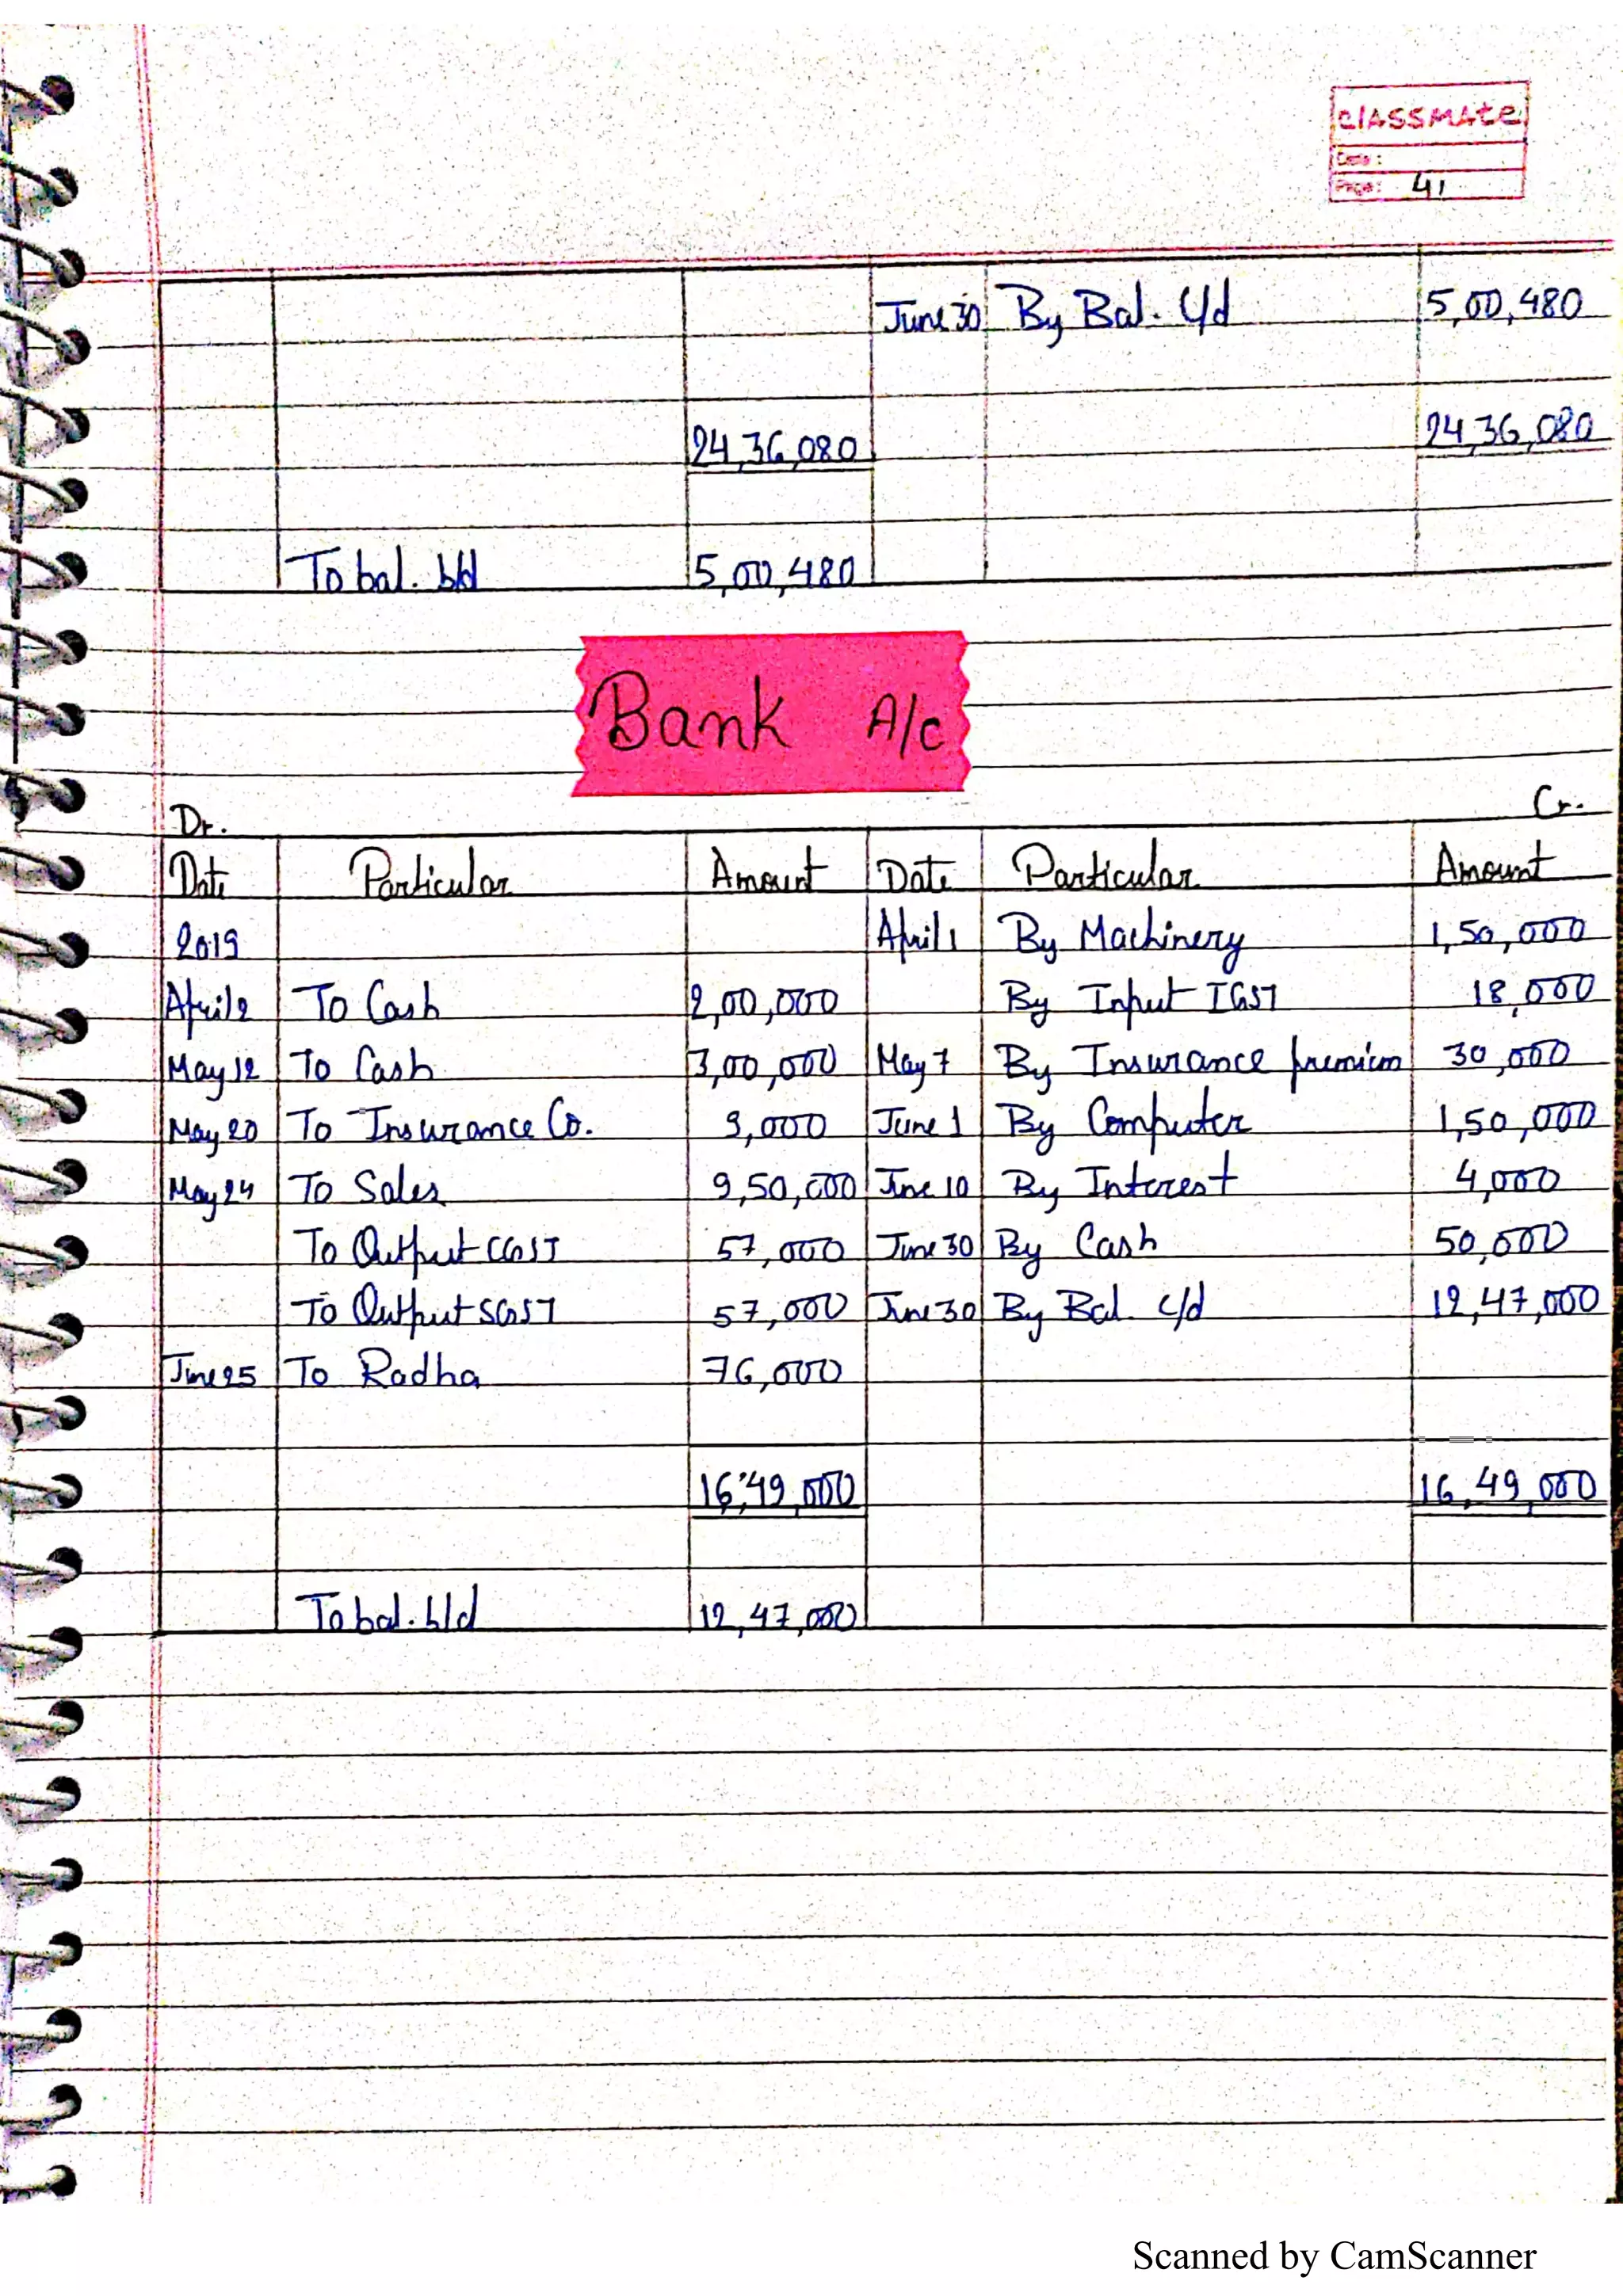 classmate
Date :
Page: 41
June 30 By Bal. c/d 5,00,480
24,36,080 24,36,080
To bal. b/d 5,00,480
Bank A/c
Dr. Cr.
Date Particular Amount Date Particular Amount
2019 April 1 By Machinery 1,50,000
April 2 To Cash 2,00,000 By Input IGST 18,000
May 12 To Cash 3,00,000 May 7 By Insurance premium 30,000
May 20 To Insurance Co. 9,000 June 1 By Computer 1,50,000
May 24 To Sales 9,50,000 June 10 By Interest 4,000
To Output CGST 57,000 June 30 By Cash 50,000
To Output SGST 57,000 June 30 By Bal. c/d 12,47,000
June 25 To Radha 76,000
16,49,000 16,49,000
To bal. b/d 12,47,000
Scanned by CamScanner